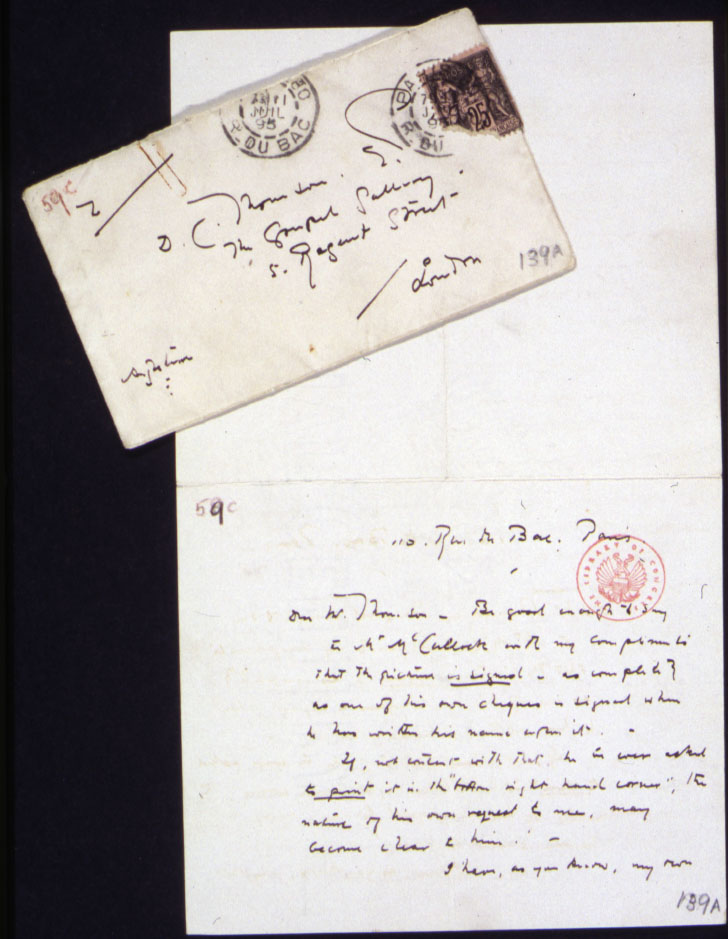 JUIL
95
R. DU BAC
PARIS
R. DU
25
59c
D. C. Thomson. E.
The Goupil Gallery.
5. Regent Street
London
Angleterre
139A
59c
110. Rue du Bac. Paris
THE LIBRARY OF CONGRESS
Dear Mr. Thomson – Be good enough to say
to Mr McCullock with my compliments
that the picture is signed – as completely
as one of his own cheques is signed when
he has written his name upon it. –
If, not content with that, he is ever asked
to print it in the "bottom right hand corner", the
nature of his own request to me, may
become clear to him! –
I have, as you know, my own
139A